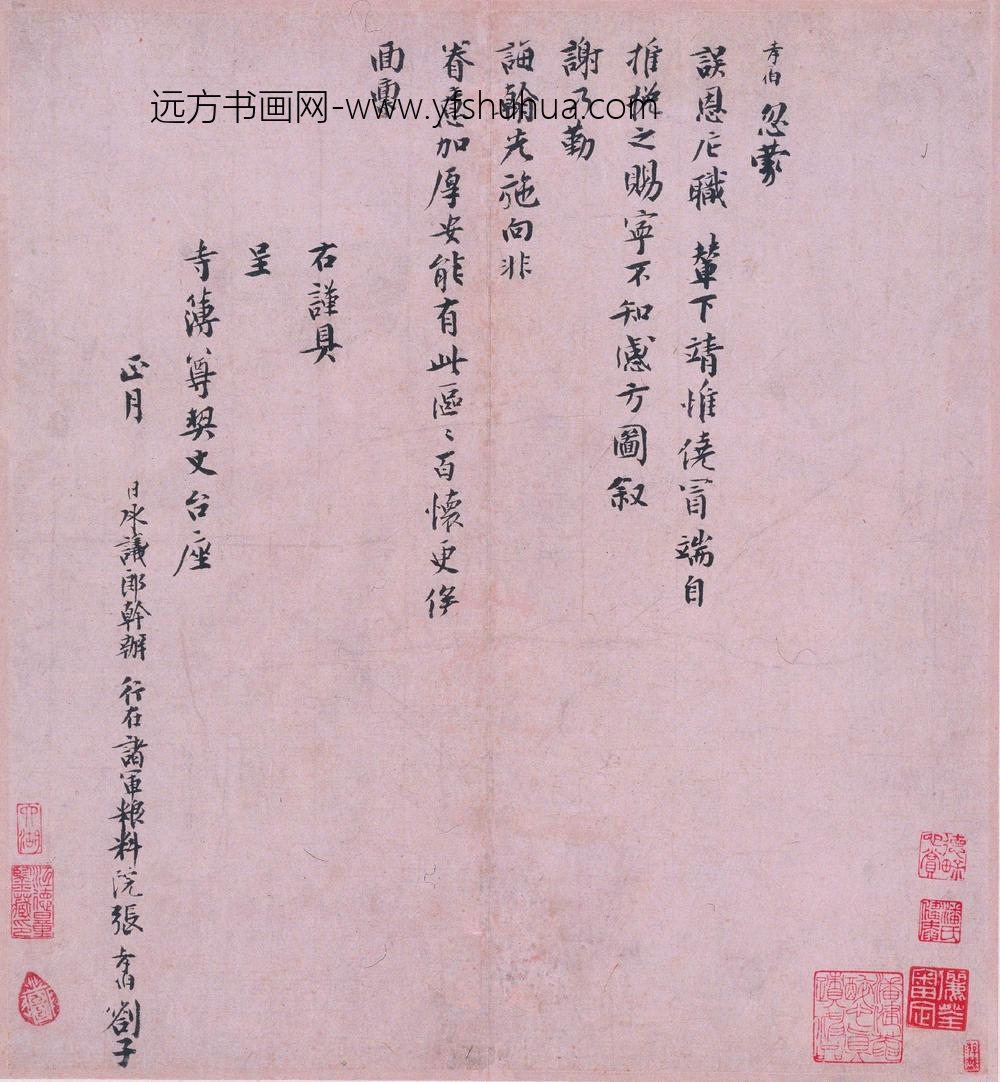 孝伯忽蒙
誤恩庀職 輦下靖惟僥冒端自
推襟之賜寧不知感方圖敘
謝乃勤
誨翰先施向非
眷意加厚安能有此區〻百懷更俟
面盡
右謹具
呈
寺簿尊契丈台座
正月 日承議郎幹辦 行在諸軍糧料院張 孝伯 劄子
远方书画网-www.yfshuhua.com